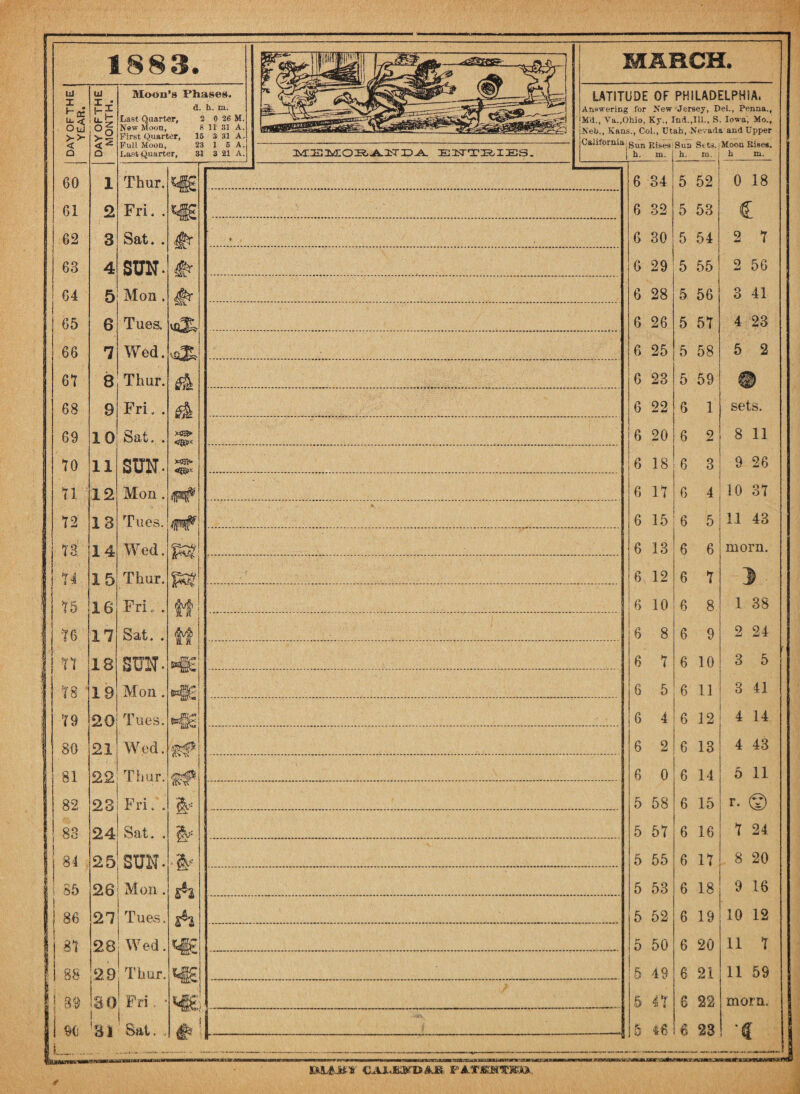 1883.
MARCH.
DAY OF THE YEAR.
DAY OF THE MONTH.
Moon's Phases.
d. h. m.
Last Quarter, 2 0 26 M.
New Moon, 8 11 31 A.
First Quarter, 15 3 31 A.
Full Moon, 23 1 5 A.
Last Quarter, 31 3 21 A.
MEMORANDA ENTRIES.
LATITUDE OF PHILADELPHIA,
Answering for New Jersey, Del., Penna.,
Md., Va., Ohio, Ky., Ind., Ill., S. Iowa, Mo.,
Neb., Kans., Col., Utah, Nevada and Upper
California
Sun Rises Sun Sets. Moon Rises.
h. m. h. m. h m.
60 1 Thur. 6 34 5 52 0 18
61 2 Fri. . 6 32 5 53
62 3 Sat. . 6 30 5 54 2 7
63 4 SUN. 6 29 5 55 2 56
64 5 Mon . 6 28 5 56 3 41
65 6 Tues. 6 26 5 57 4 23
66 7 Wed. 6 25 5 58 5 2
67 8 Thur. 6 23 5 59
68 9 Fri. . 6 22 6 1 sets.
69 10 Sat. . 6 20 6 2 8 11
70 11 SUN. 6 18 6 3 9 26
71 12 Mon . 6 17 6 4 10 37
72 13 Tues. 6 15 6 5 11 43
73 14 Wed. 6 13 6 6 morn.
74 15 Thur. 6 12 6 7
75 16 Fri. . 6 10 6 8 1 38
76 17 Sat. . 6 8 6 9 2 24
77 18 SUN. 6 7 6 10 3 5
78 19 Mon . 6 5 6 11 3 41
79 20 Tues. 6 4 6 12 4 14
80 21 Wed. 6 2 6 13 4 43
81 22 Thur. 6 0 6 14 5 11
82 23 Fri. . 5 58 6 15 r.
83 24 Sat. . 5 57 6 16 7 24
84 25 SUN. 5 55 6 17 8 20
85 26 Mon . 5 53 6 18 9 16
86 27 Tues. 5 52 6 19 10 12
87 28 Wed. 5 50 6 20 11 7
88 29 Thur. 5 49 6 21 11 59
89 30 Fri . 5 47 6 22 morn.
90 31 Sat. . 5 46 6 23
DIARY CALENDAR PATENTED.